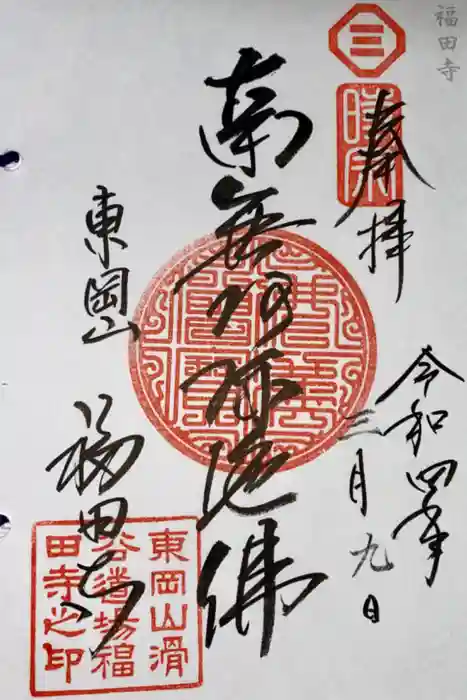 福田寺
三
時宗
奉拝
令和四年
三月九日
南無阿弥陀佛
東岡山
福田寺
東岡山滑
谷道場福
田寺之印